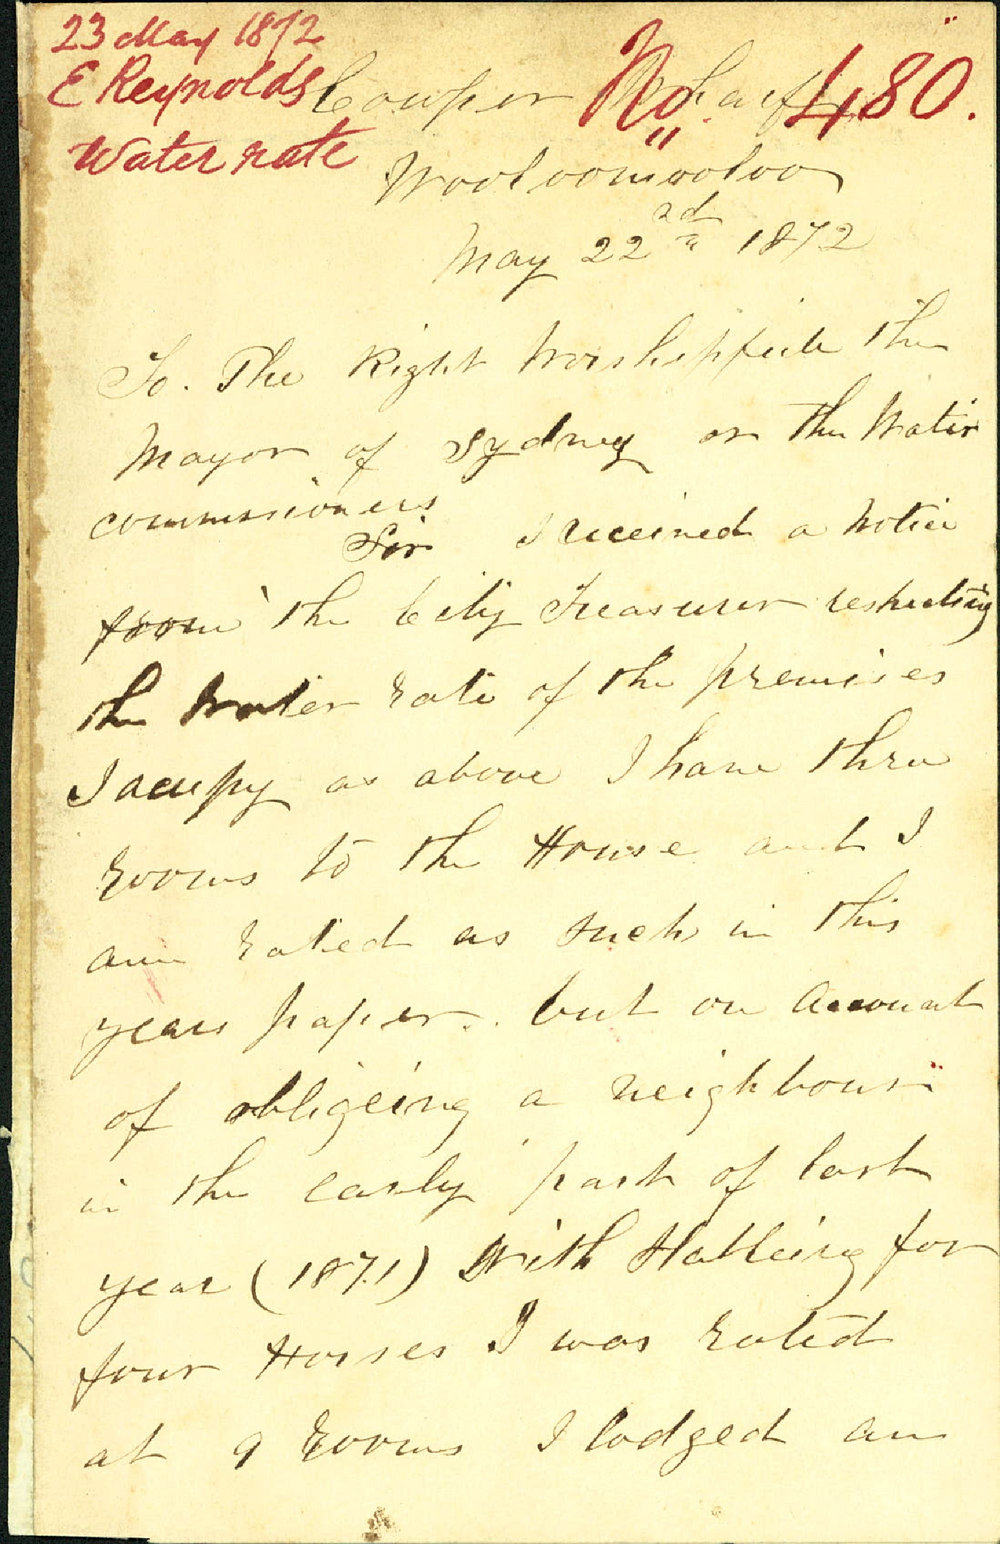 23 May 1872
E Reynolds
Water rate
No. 480.
Cowper Wharf
Wooloomooloo
May 22nd 1872
To. The Right Worshipfull the
Mayor of Sydney or the Water
commissioners
Sir I received a Notice
from the City Treasurer respecting
the Water rate of the premises
I acupy as above I have three
rooms to the House and I
am rated as such in this
years paper. but on account
of obligeing a neighbour
in the early part of last
year (1871) With Stableing for
four Horses I was rated
at 9 rooms I lodged an